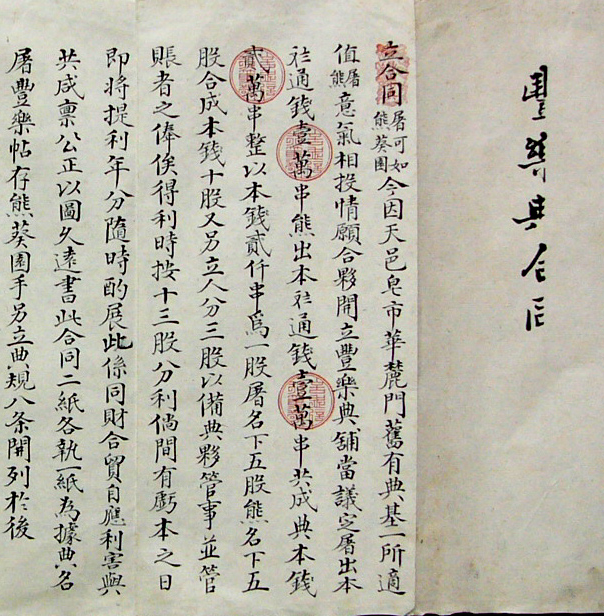 豐樂典合同
立合同屠可如熊葵園今因天邑皂市華麓門舊有典基一所適
值屠熊意氣相投情願合夥開立豐樂典舖當議定屠出本
通錢壹萬串熊出本通錢壹萬串共成典本錢
貳萬串整以本錢貳仟串爲一股屠名下五股熊名下五
股合成本錢十股又另立人分三股以備典夥管事並管
賬者之俸俟得利時按十三股分利倘間有虧本之日
即將提利年分隨時酌展此係同財合貿自應利害與
共咸禀公正以圖久遠書此合同二紙各執一紙為據典名
屠豐樂帖存熊葵園手另立典規八条開列於後